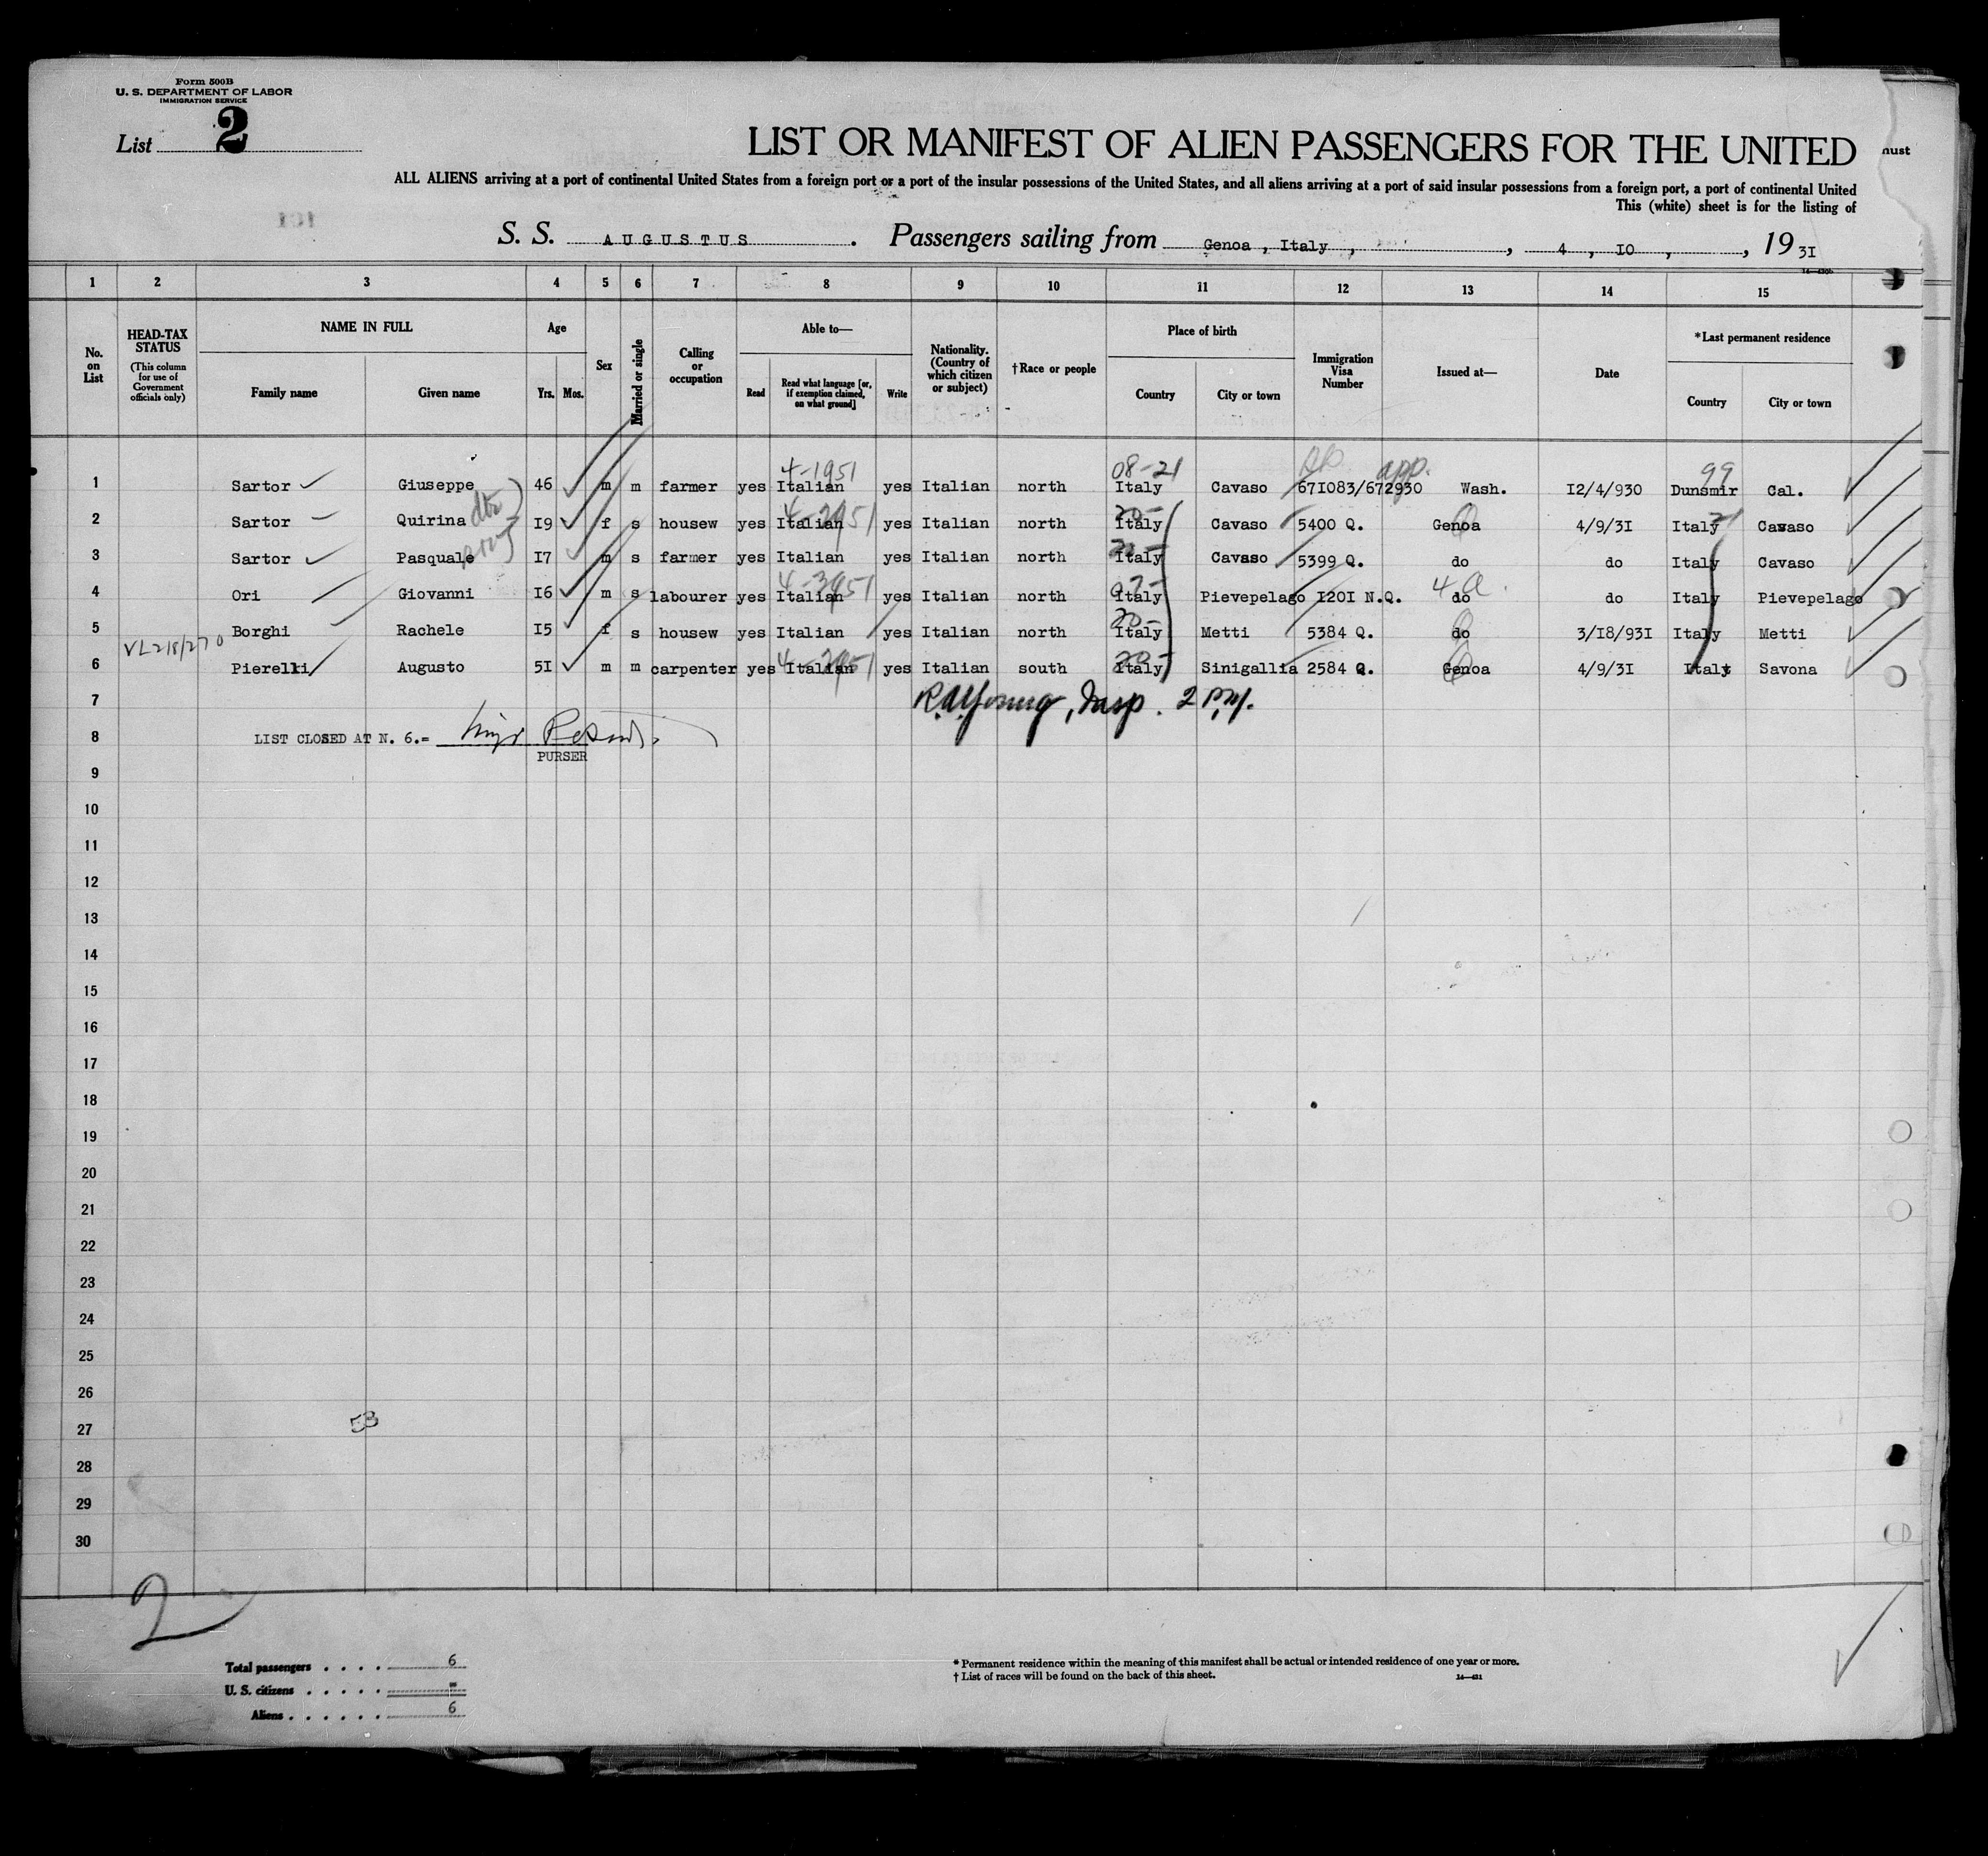 Form 500B
U. S. DEPARTMENT OF LABOR
IMMIGRATION SERVICE
List 2
LIST OR MANIFEST OF ALIEN PASSENGERS FOR THE UNITED
nust
ALL ALIENS arriving at a port of continental United States from a foreign port or a port of the insular possessions of the United States, and all aliens arriving at a port of said insular possessions from a foreign port, a port of continental United
This (white) sheet is for the listing of
S. S. AUGUSTUS . Passengers sailing from Genoa , Italy , , 4 , I0 , , 19 3I
1 2 3 4 5 6 7 8 9 10 11 12 13 14 15
No. on List
HEAD-TAX STATUS (This column for use of Government officials only)
NAME IN FULL
Family name Given name
Age
Yrs. Mos.
Sex
Married or single
Calling or occupation
Able to—
Read Read what language [or, if exemption claimed, on what ground] Write
Nationality. (Country of which citizen or subject)
†Race or people
Place of birth
Country City or town
Immigration Visa Number
Issued at—
Date
*Last permanent residence
Country City or town
4-1951 08-21 app. 99
1 Sartor Giuseppe 46 m m farmer yes Italian yes Italian north Italy Cavaso 67I083/672930 Wash. I2/4/930 Dunsmir Cal.
2 Sartor Quirina I9 f s housew yes Italian yes Italian north Italy Cavaso 5400 Q. Genoa 4/9/3I Italy Cavaso
3 Sartor Pasquale I7 m s farmer yes Italian yes Italian north Italy Cavaso 5399 Q. do do Italy Cavaso
4 Ori Giovanni I6 m s labourer yes Italian yes Italian north Italy Pievepelago I20I N.Q. do do Italy Pievepelago
5 Borghi Rachele I5 f s housew yes Italian yes Italian north Italy Metti 5384 Q. do 3/I8/93I Italy Metti
VL218/270
6 Pierelli Augusto 5I m m carpenter yes Italian yes Italian south Italy Sinigallia 2584 Q. Genoa 4/9/3I Italy Savona
7 R.A.Young, Insp.
8 LIST CLOSED AT N. 6.=
PURSER
9
10
11
12
13
14
15
16
17
18
19
20
21
22
23
24
25
26
27
28
29
30
2
Total passengers . . . . 6
U. S. citizens . . . . . =
Aliens . . . . . . 6
* Permanent residence within the meaning of this manifest shall be actual or intended residence of one year or more.
† List of races will be found on the back of this sheet.